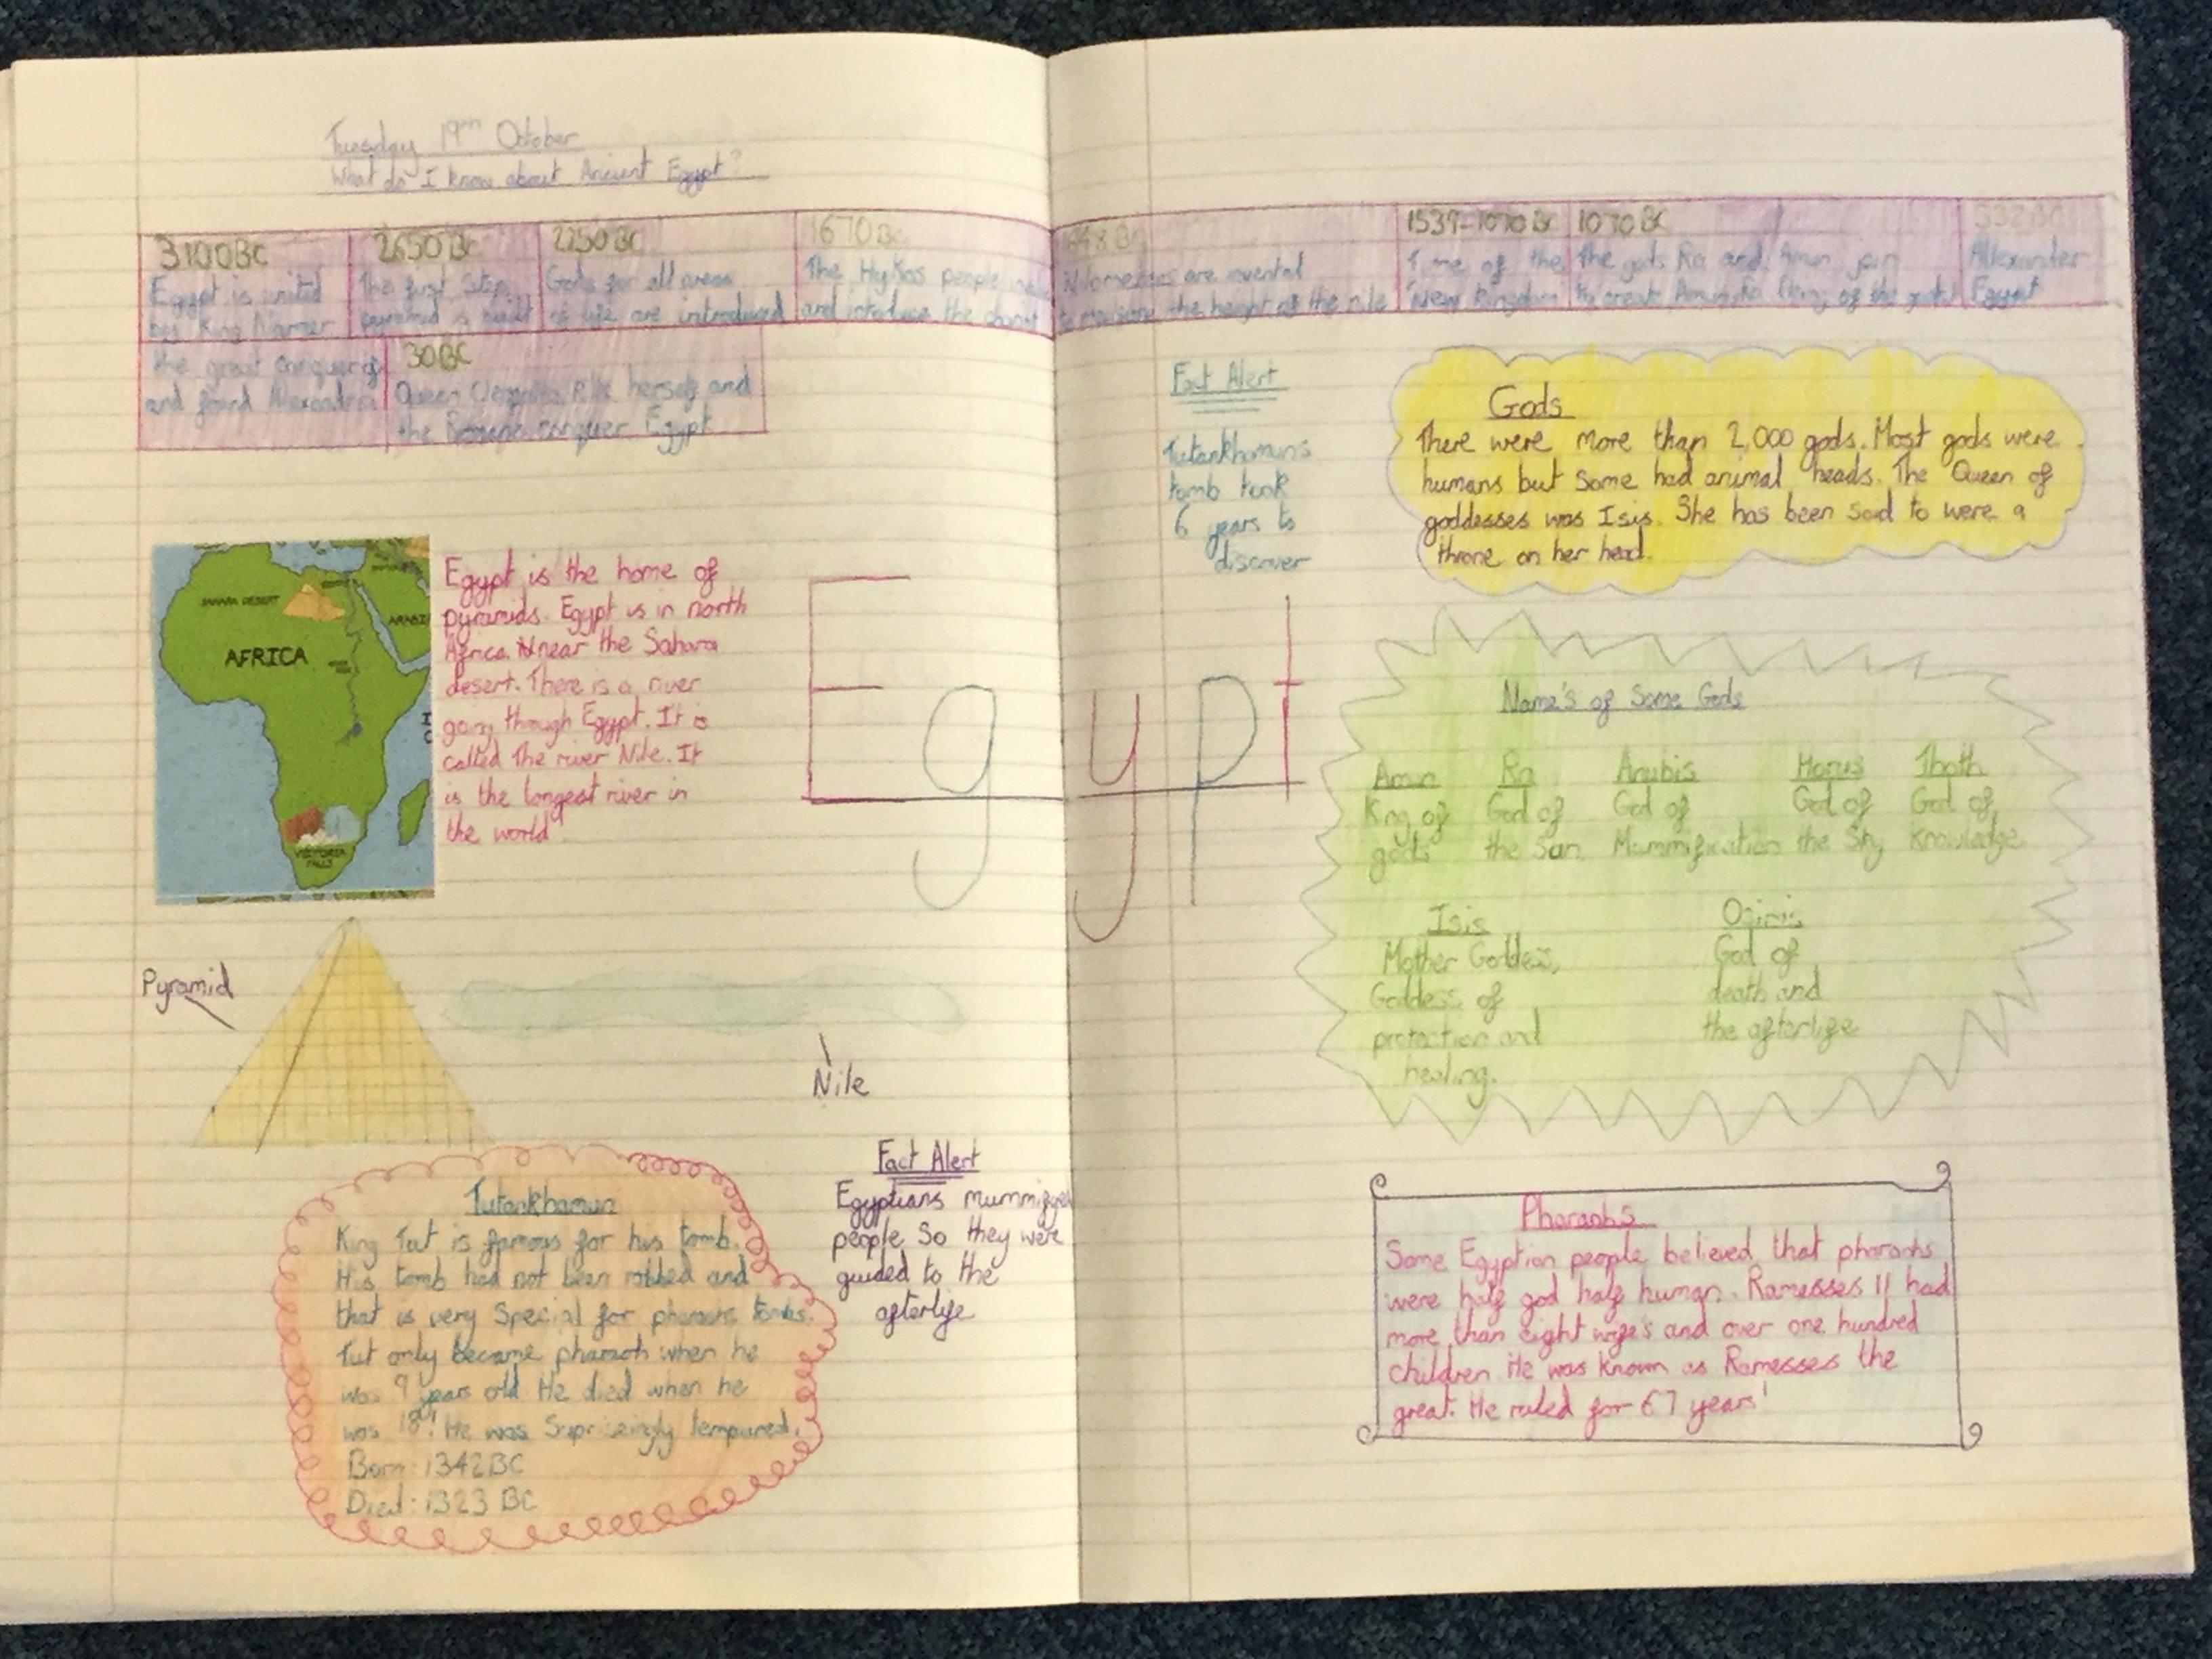 Tuesday 19th October
What do I know about Ancient Egypt?
3100BC
Egypt is united
by King Narmer
2650BC
The first Step
pyramid is built
2250BC
Gods for all areas
of life are introduced
1670BC
The Hyksos people
and introduce the
BC
Nilometers are
to measure the height of the nile
1539-1070BC
Time of the
New Kingdom
1070BC
The gods Ra and Amun join
to create Amun-Ra (King of the gods)
332BC
Alexander
Egypt
the great
and found Alexandria
30BC
Queen Cleopatra herself and
the Romans conquer Egypt
SAHARA DESERT
AFRICA
ARABI
VICTORIA
FALLS
Egypt is the home of
pyramids. Egypt is in north
Africa. near the Sahara
desert. There is a river
going through Egypt. It is
called The river Nile. It
is the longest river in
the world
Egypt
Pyramid
Nile
Tutankhamun
King Tut is famous for his tomb.
His tomb had not been robbed and
that is very Special for tombs.
Tut only became pharaoh when he
was 9 years old He died when he
was 18! He was tempured.
Born: 1342BC
Died: 1323 BC
Fact Alert
Egyptians mummifyed
people So they were
guided to the
afterlife
Fact Alert
Tutankhamun's
tomb took
6 years to
discover
Gods
There were more than 2,000 gods. Most gods were
humans but Some had animal heads. The Queen of
goddesses was Isis. She has been said to were a
throne on her head.
Name's of Some Gods
Amun
King of
gods
Ra
God of
the Sun
Anubis
God of
Mummification
Horus
God of
the Sky
Thoth
God of
knowledge
Isis
Mother Goddess,
Goddess of
protection and
healing.
Osiris
God of
death and
the afterlife
Some Egyptian people believed that
were half god half human. Ramesses II had
more than eight wife's and over one hundred
children He was known as Ramesses the
great. He ruled for 67 years!